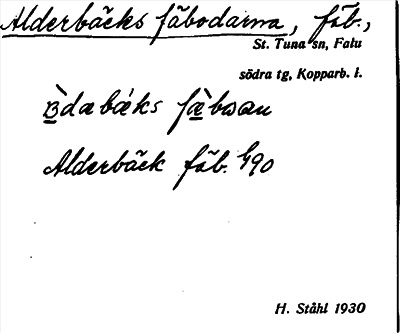 Alderbäcks fäbodarna, fäb.,
St. Tuna sn, Falu
södra tg, Kopparb. l.
fæ̀bωαu
Alderbäck fäb. h90
H. Ståhl 1930